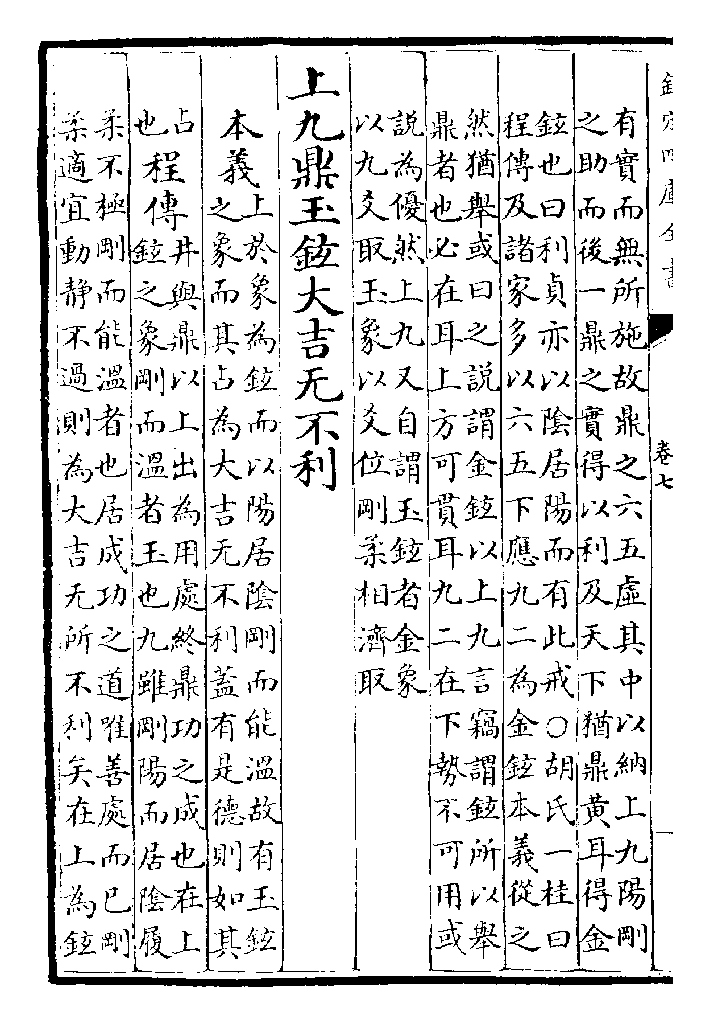 欽定四庫全書
卷七
有實而無所施故鼎之六五虛其中以納上九陽剛
之助而後一鼎之實得以利及天下猶鼎黃耳得金
鉉也曰利貞亦以陰居陽而有此戒○胡氏一桂曰
程傳及諸家多以六五下應九二為金鉉本義從之
然猶舉或曰之說謂金鉉以上九言竊謂鉉所以舉
鼎者也必在耳上方可貫耳九二在下勢不可用或
說為優然上九又自謂玉鉉者金象
以九爻取玉象以爻位剛柔相濟取
上九鼎玉鉉大吉无不利
本義上於象為鉉而以陽居陰剛而能溫故有玉鉉
之象而其占為大吉无不利蓋有是德則如其
占也程傳井與鼎以上出為用處終鼎功之成也在上
鉉之象剛而溫者玉也九雖剛陽而居陰履
柔不極剛而能溫者也居成功之道唯善處而已剛
柔適宜動靜不過則為大吉无所不利矣在上為鉉